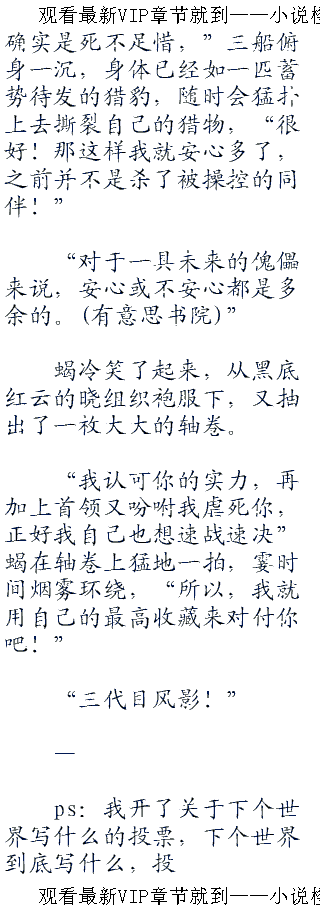 观看最新VIP章节就到——小说
确实是死不足惜，”三船俯
身一沉，身体已经如一匹蓄
势待发的猎豹，随时会猛扑
上去撕裂自己的猎物，“很
好！那这样我就安心多了，
之前并不是杀了被操控的同
伴！”
“对于一具未来的傀儡
来说，安心或不安心都是多
余的。(有意思书院)”
蝎冷笑了起来，从黑底
红云的晓组织袍服下，又抽
出了一枚大大的轴卷。
“我认可你的实力，再
加上首领又吩咐我虐死你，
正好我自己也想速战速决”
蝎在轴卷上猛地一拍，霎时
间烟雾环绕，“所以，我就
用自己的最高收藏来对付你
吧！”
“三代目风影！”
—
ps：我开了关于下个世
界写什么的投票，下个世界
到底写什么，投
观看最新VIP章节就到——小说